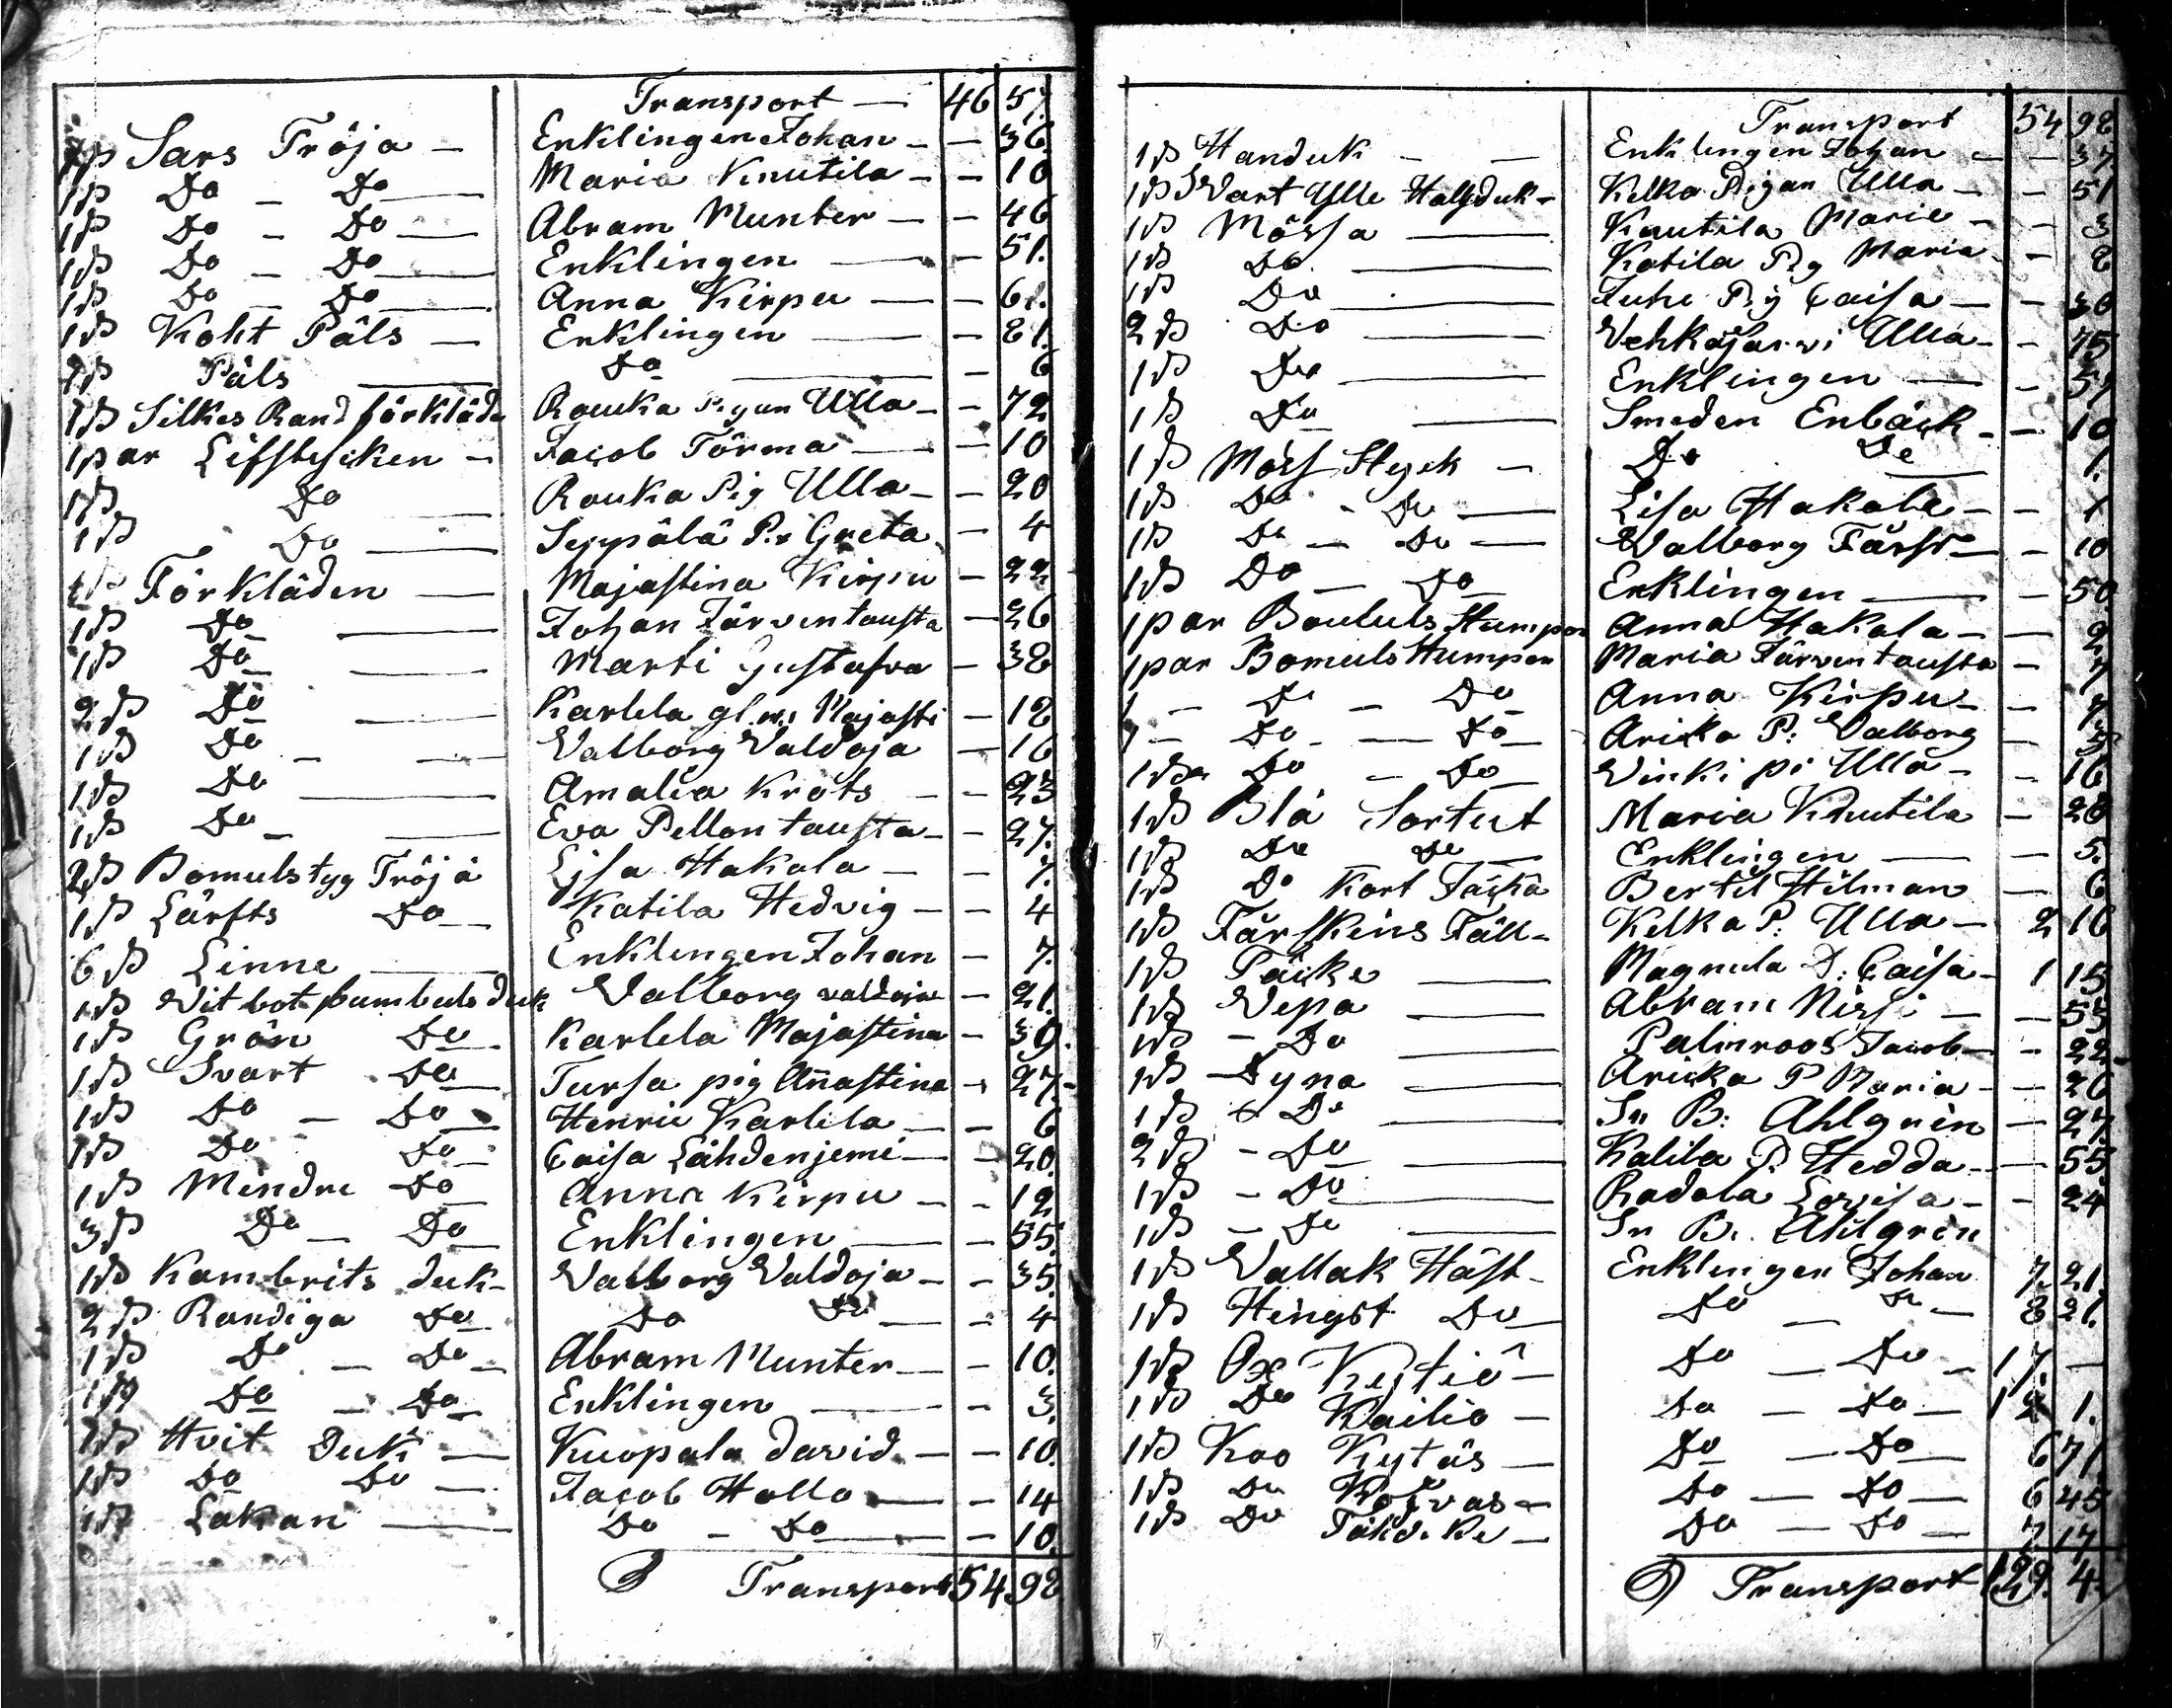 Transport — 46 57.
1 p Sars Tröja — Enklingen Johan — — 36.
1 p Do — Do — Maria Knutila — — 10
1 p Do — Do — Abram Munter — — 46
1 p Do — Do — Enklingen — — 51.
1 p Do — Do — Anna Kirpu — — 61.
1 p Koht Päls — Enklingen — — 81.
1 p Päls — Do — — 6
1 p Silkes Rand förkläde Rouka Pigan Ulla — — 72
1 par Lifstycken — Jacob Törma — — 10
1 p Do — Rouka Pig Ulla — — 20
1 p Do — Seppälä P. Greta — 4
1 p Förkläden — Majastina Kirpu — 22
1 p Do — Johan Järventausta — 26
1 p Do — Marti Gustafva — 38
2 p Do — Karlela gl. Majasti — 18
1 p Do — — Valborg Valdoja — 16
1 p Do — Amalia Kròts — — 23
1 p Do — — Eva Pellontausta — — 27.
2 p Bomulstyg Tröja Lisa Hakala — — 7.
1 p Lärfts Do — Katila Hedvig — — 4
6 p Linne — Enklingen Johan — 7.
1 p Vit bot bumbuls duk Valborg valdoja — 21.
1 p Grön Do — Karlela Majastina — 39.
1 p Svart Do — Tursa pig Annastina — 27.
1 p Do — Do — Henric Karlela — — 6
1 p Do Do — Caisa Lähdenjemi — — 20.
1 p Mindre Do — Anna Kirpu — — 12
3 p Do — Do — Enklingen — — 55.
1 p Kambrits duk — Valborg Valdoja — — 35.
2 p Randiga Do — Do Do — — 4
1 p Do — Do — Abram Munter — — 10.
1 p Do — Do — Enklingen — — 3.
1 p Hvit Duk — Kuopala david — — 10.
1 p Do Do — Jacob Hollo — — 14
1 p Lakan — Do — Do — — 10.
Transport 54 98
Transport 54 98
1 p Handuk — — Enklingen Johan — — 37.
1 p Svart Ylle Halsduk — Kelka Pigan Ulla — — 51
1 p Mössa — Knutila Maria — — 3
1 p Do — Katila Pig Maria — — 8
1 p Do — Pig Caisa — — 30
2 p Do — Vehkajärvi Ulla — — 75
1 p Do — Enklingen — — 51
1 p Do — Smeden Enbäck — — 10
1 p Möss Styck — Do Do — 1.
1 p Do — Do — Lisa Hakala — — 1
1 p Do — Do — Valborg — — 10
1 p Do — Do — Enklingen — — 50.
1 par Boululs Stumpor Anna Hakala — — 2
1 par Bomuls Stumpor Maria Järventausta — 7
1 — Do — Do — Anna Kirpu — — 7.
1 — Do — — Do — Aricka P: Valborg — 5
1 p Do — Do — Vinki pi Ulla — — 16
1 p Blå Sortut Maria Knutila — 28
1 p Do Do — Enklingen — — 5.
1 p Do Kort Täcka Bertil Hilman — 6
1 p Fårskins Fäll — Kelka P: Ulla — 2 16
1 p Täcke — Magnula D: Caisa — 1 15
1 p Vepa — Abram Nissi — — 53
1 p — Do — Palmroos Jacob — — 22
1 p — Dyna — Aricka P Maria — — 26
1 p Do — Sn B: Ahlgrèn — 27.
2 p — Do — Katila P. Hedda — — 55
1 p — Do — Radala Lovisa — — 24
1 p — Do — Sn B: Ahlgrèn
1 p Vallak Häst — Enklingen Johan 7. 21.
1 p Hingst Do — Do — Do — 8 21.
1 p Ox Kystiö — Do — Do — 17. —
1 p Do Kailio — Do — Do — 12 1.
1 p Koo Kytäs — Do — Do — 6 71
1 p Do — Do — Do — 6 45
1 p Do — Do — Do — 7 17
Transport 129. 4.